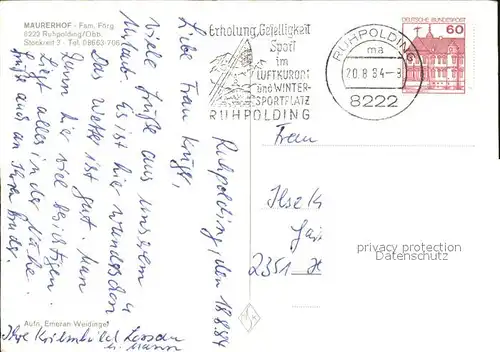 MAURERHOF - Fam. Förg
8222 Ruhpolding/Obb.
Stockreit 3 - Tel. 08663-766
Erholung, Geselligkeit
Sport
im
LUFTKURORT
und WINTER-
SPORTPLATZ
RUHPOLDING
RUHPOLDING
ma
20.8.84-8
8222
DEUTSCHE BUNDESPOST
60
Ruhpolding, den 18.8.84
Liebe Frau Krüger,
viele Grüße aus unserem
Urlaub. Es ist hier wunderschön
Das Wetter ist gut. Man
kann hier viel besichtigen.
Liegt alles in der Nähe.
Gruß auch an Ihren Bruder.
Ihre
u. Mann
Frau
Ilse K
2351 H
privacy protection
Datenschutz
Aufn. Emeran Weidinger